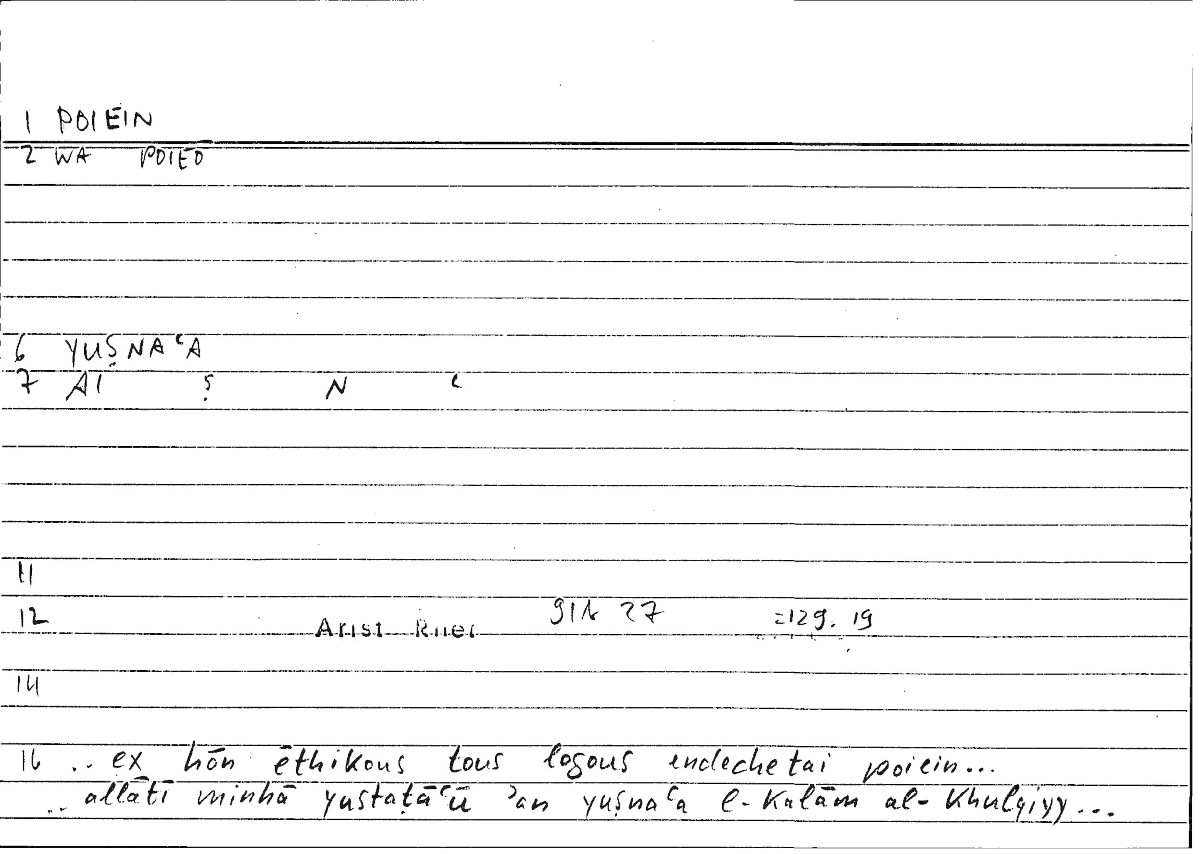 1 POIEIN
2 WA POIEO
6 YUṢNAʿA
7 AI Ṣ N ʿ
11
12 Arist Rhet 91b 27 =129. 19
14
16 .. ex hōn ēthikous tous logous endechetai poiein...
.. allātī minhā yustaṭāʿū ʾan yuṣnaʿa l-Kalām al-Khulqiyy...